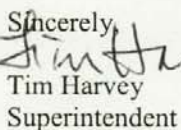 Sincerely
Tim Ha
Tim Harvey
Superintendent